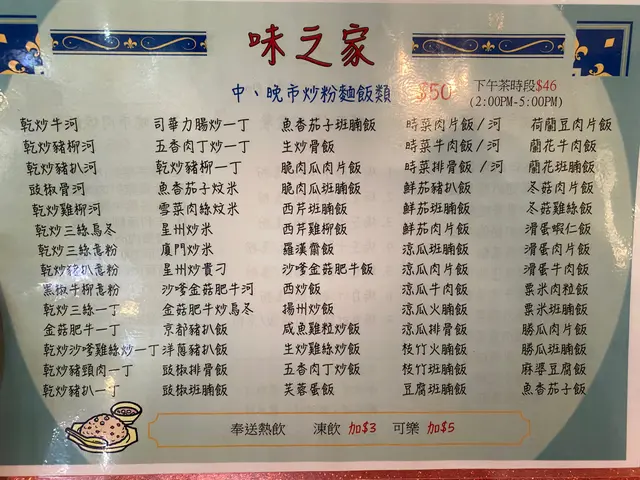 味之家
中、晚市炒粉麵飯類 $50 下午茶時段$46
(2:00PM-5:00PM)
乾炒牛河
乾炒豬柳河
乾炒豬扒河
豉椒骨河
乾炒雞柳河
乾炒三絲烏冬
乾炒三絲意粉
乾炒豬扒意粉
黑椒牛柳意粉
乾炒三絲一丁
金菇肥牛一丁
乾炒沙嗲雞絲炒一丁
乾炒豬頸肉一丁
乾炒豬扒一丁
司華力腸炒一丁
五香肉丁炒一丁
乾炒豬柳一丁
魚香茄子炆米
雪菜肉絲炆米
星州炒米
廈門炒米
星州炒貴刁
沙嗲金菇肥牛河
金菇肥牛炒烏冬
京都豬扒飯
洋蔥豬扒飯
豉椒排骨飯
豉椒班腩飯
魚香茄子班腩飯
生炒骨飯
脆肉瓜肉片飯
脆肉瓜班腩飯
西芹班腩飯
西芹雞柳飯
羅漢齋飯
沙嗲金菇肥牛飯
西炒飯
揚州炒飯
咸魚雞粒炒飯
生炒雞絲飯
五香肉丁炒飯
芙蓉蛋飯
時菜肉片飯/河
時菜牛肉飯/河
時菜排骨飯/河
鮮茄豬扒飯
鮮茄班腩飯
鮮茄肉片飯
涼瓜班腩飯
涼瓜肉片飯
涼瓜牛肉飯
涼瓜火腩飯
涼瓜排骨飯
枝竹火腩飯
枝竹班腩飯
豆腐班腩飯
荷蘭豆肉片飯
蘭花牛肉飯
蘭花班腩飯
冬菇肉片飯
冬菇雞絲飯
滑蛋蝦仁飯
滑蛋肉片飯
滑蛋牛肉飯
粟米肉粒飯
粟米班腩飯
勝瓜肉片飯
勝瓜班腩飯
麻婆豆腐飯
魚香茄子飯
奉送熱飲 凍飲 加$3 可樂 加$5